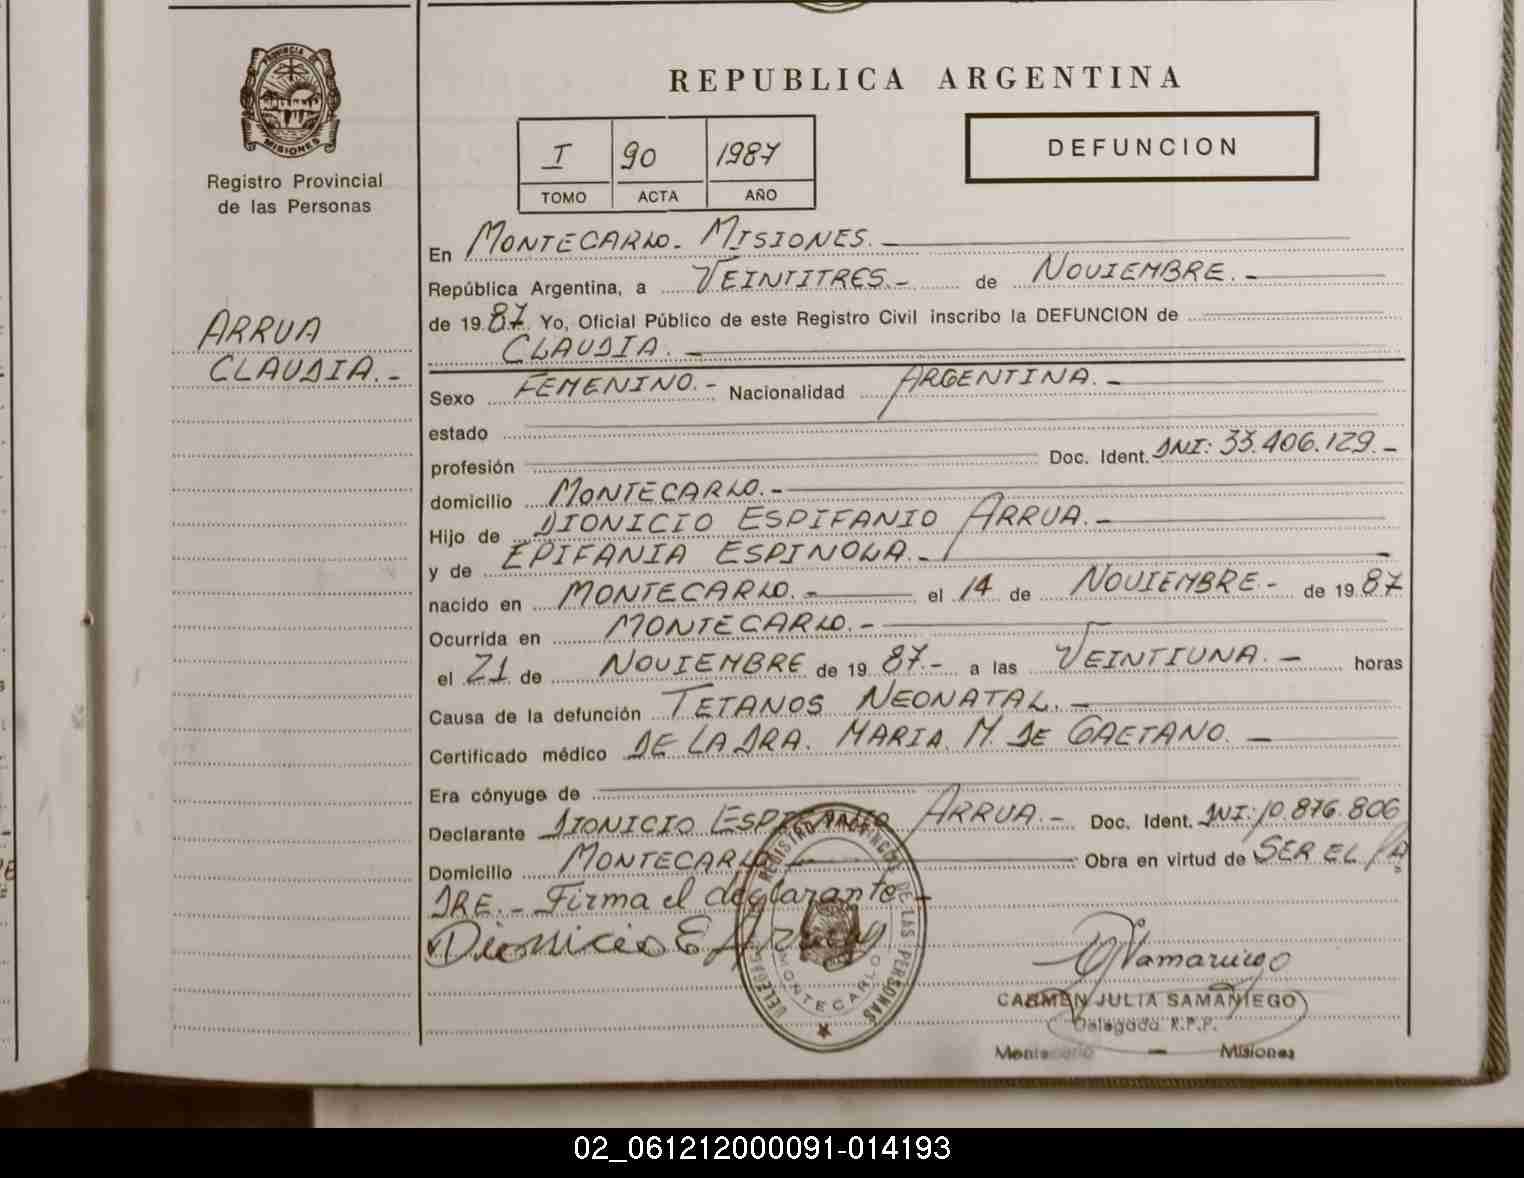 PROVINCIA DE
MISIONES
Registro Provincial
de las Personas
ARRUA
CLAUDIA.-
REPUBLICA ARGENTINA
I 90 1987
TOMO ACTA AÑO
DEFUNCION
En MONTECARLO. MISIONES.-
República Argentina, a VEINTITRES.- de NOVIEMBRE.-
de 1987. Yo, Oficial Público de este Registro Civil inscribo la DEFUNCION de
CLAUDIA.-
Sexo FEMENINO.- Nacionalidad ARGENTINA.-
estado
profesión Doc. Ident. DNI: 33.406.129.-
domicilio MONTECARLO.-
Hijo de DIONICIO ESPIFANIO ARRUA.-
y de EPIFANIA ESPINOLA.-
nacido en MONTECARLO.- el 14 de NOVIEMBRE.- de 1987
Ocurrida en MONTECARLO.-
el 21 de NOVIEMBRE de 1987.- a las VEINTIUNA.- horas
Causa de la defunción TETANOS NEONATAL.-
Certificado médico DE LA DRA. MARIA M DE GAETANO.-
Era cónyuge de
Declarante DIONICIO ESPIFANIO ARRUA.- Doc. Ident. DNI: 10.876.806
Domicilio MONTECARLO Obra en virtud de SER EL PA
DRE.- Firma el declarante.-
Dionicio E Arrua
REGISTRO PROVINCIAL DE LAS PERSONAS
MONTECARLO
Samaniego
CARMEN JULIA SAMANIEGO
Delegada R.P.P.
Montecarlo — Misiones
02_061212000091-014193